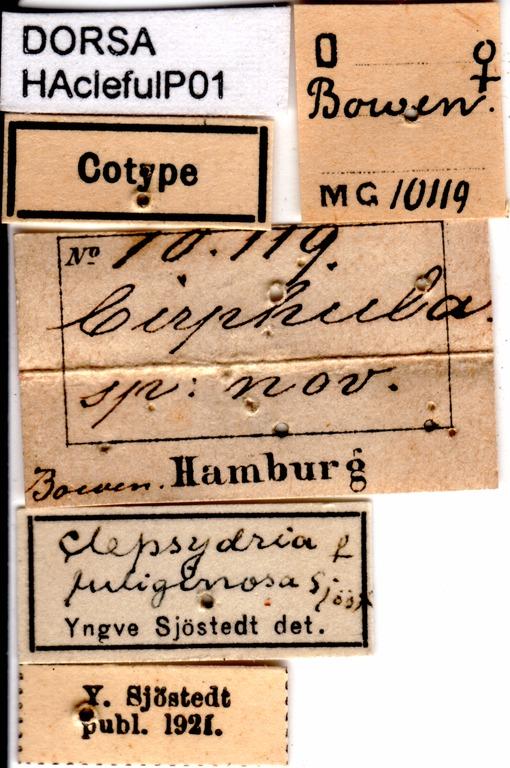 DORSA
HAclefulP01
♀
Bowen.
MG 10119
Cotype
No 10.119.
Cirphula.
sp: nov.
Bowen. Hamburg
Clepsydria
fuliginosa Sjöst
Yngve Sjöstedt det.
Y. Sjöstedt
publ. 1921.